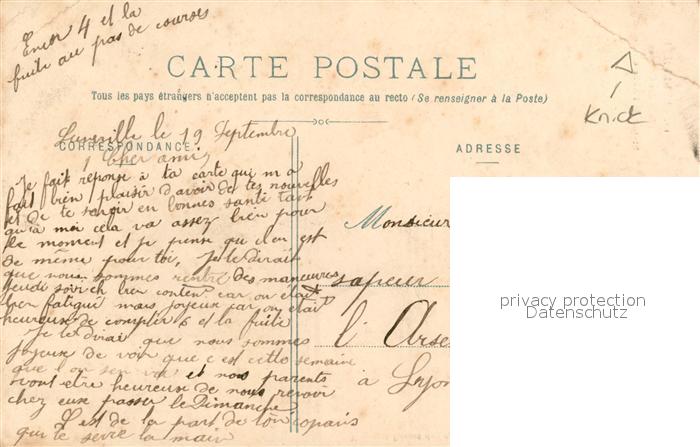 Encor 4 et la
fuite au pas de courses
CARTE POSTALE
Tous les pays étrangers n'acceptent pas la correspondance au recto (Se renseigner à la Poste)
Knick
Luneville le 19 Septembre
CORRESPONDANCE
ADRESSE
Cher ami
Je fait réponse à ta carte qui m'a
fait bien plaisir d'avoir de tes nouvelles
et de te savoir en bonnes santé tant
qu'à moi cela va assez bien pour
le moment et je pense qu'il en est
de même pour toi. Je te dirais
que nous sommes rentré des manœuvres
jeudi soir bien content car on était
bien fatigué mais joyeux car on était
heureux de compter 6 et la fuite
Je te dirai que nous sommes
joyeux de voir que c'est cette semaine
que l'on s'en va et nos parents
vont être heureuse de nous revoir
chez eux passer le Dimanche
C'est de la part de ton copain
qui te serre la main
Monsieur
sapeur
l'Arse
à Lyon
privacy protection
Datenschutz